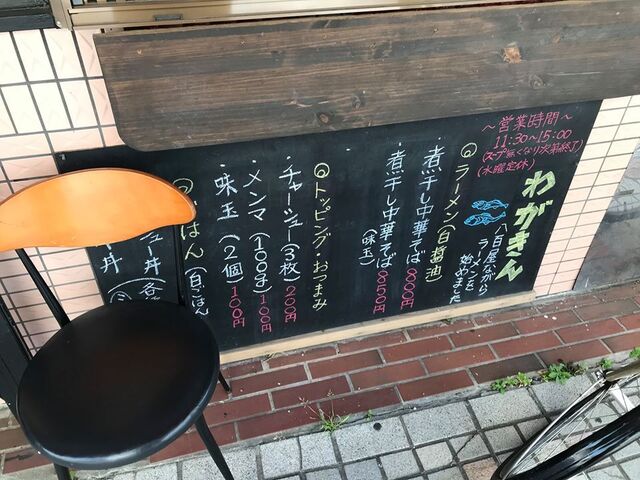 ～営業時間～
11:30~15:00
(スープ無くなり次第終了)
(水曜定休)
わがきん
八百屋ながら
ラーメンを
始めました
◎ラーメン(白醤油)
・煮干し中華そば 800円
・煮干し中華そば 850円
(味玉)
◎トッピング・おつまみ
・チャーシュー(3枚) 200円
・メンマ(100g) 100円
・味玉(2個) 100円
ごはん(白ごはん